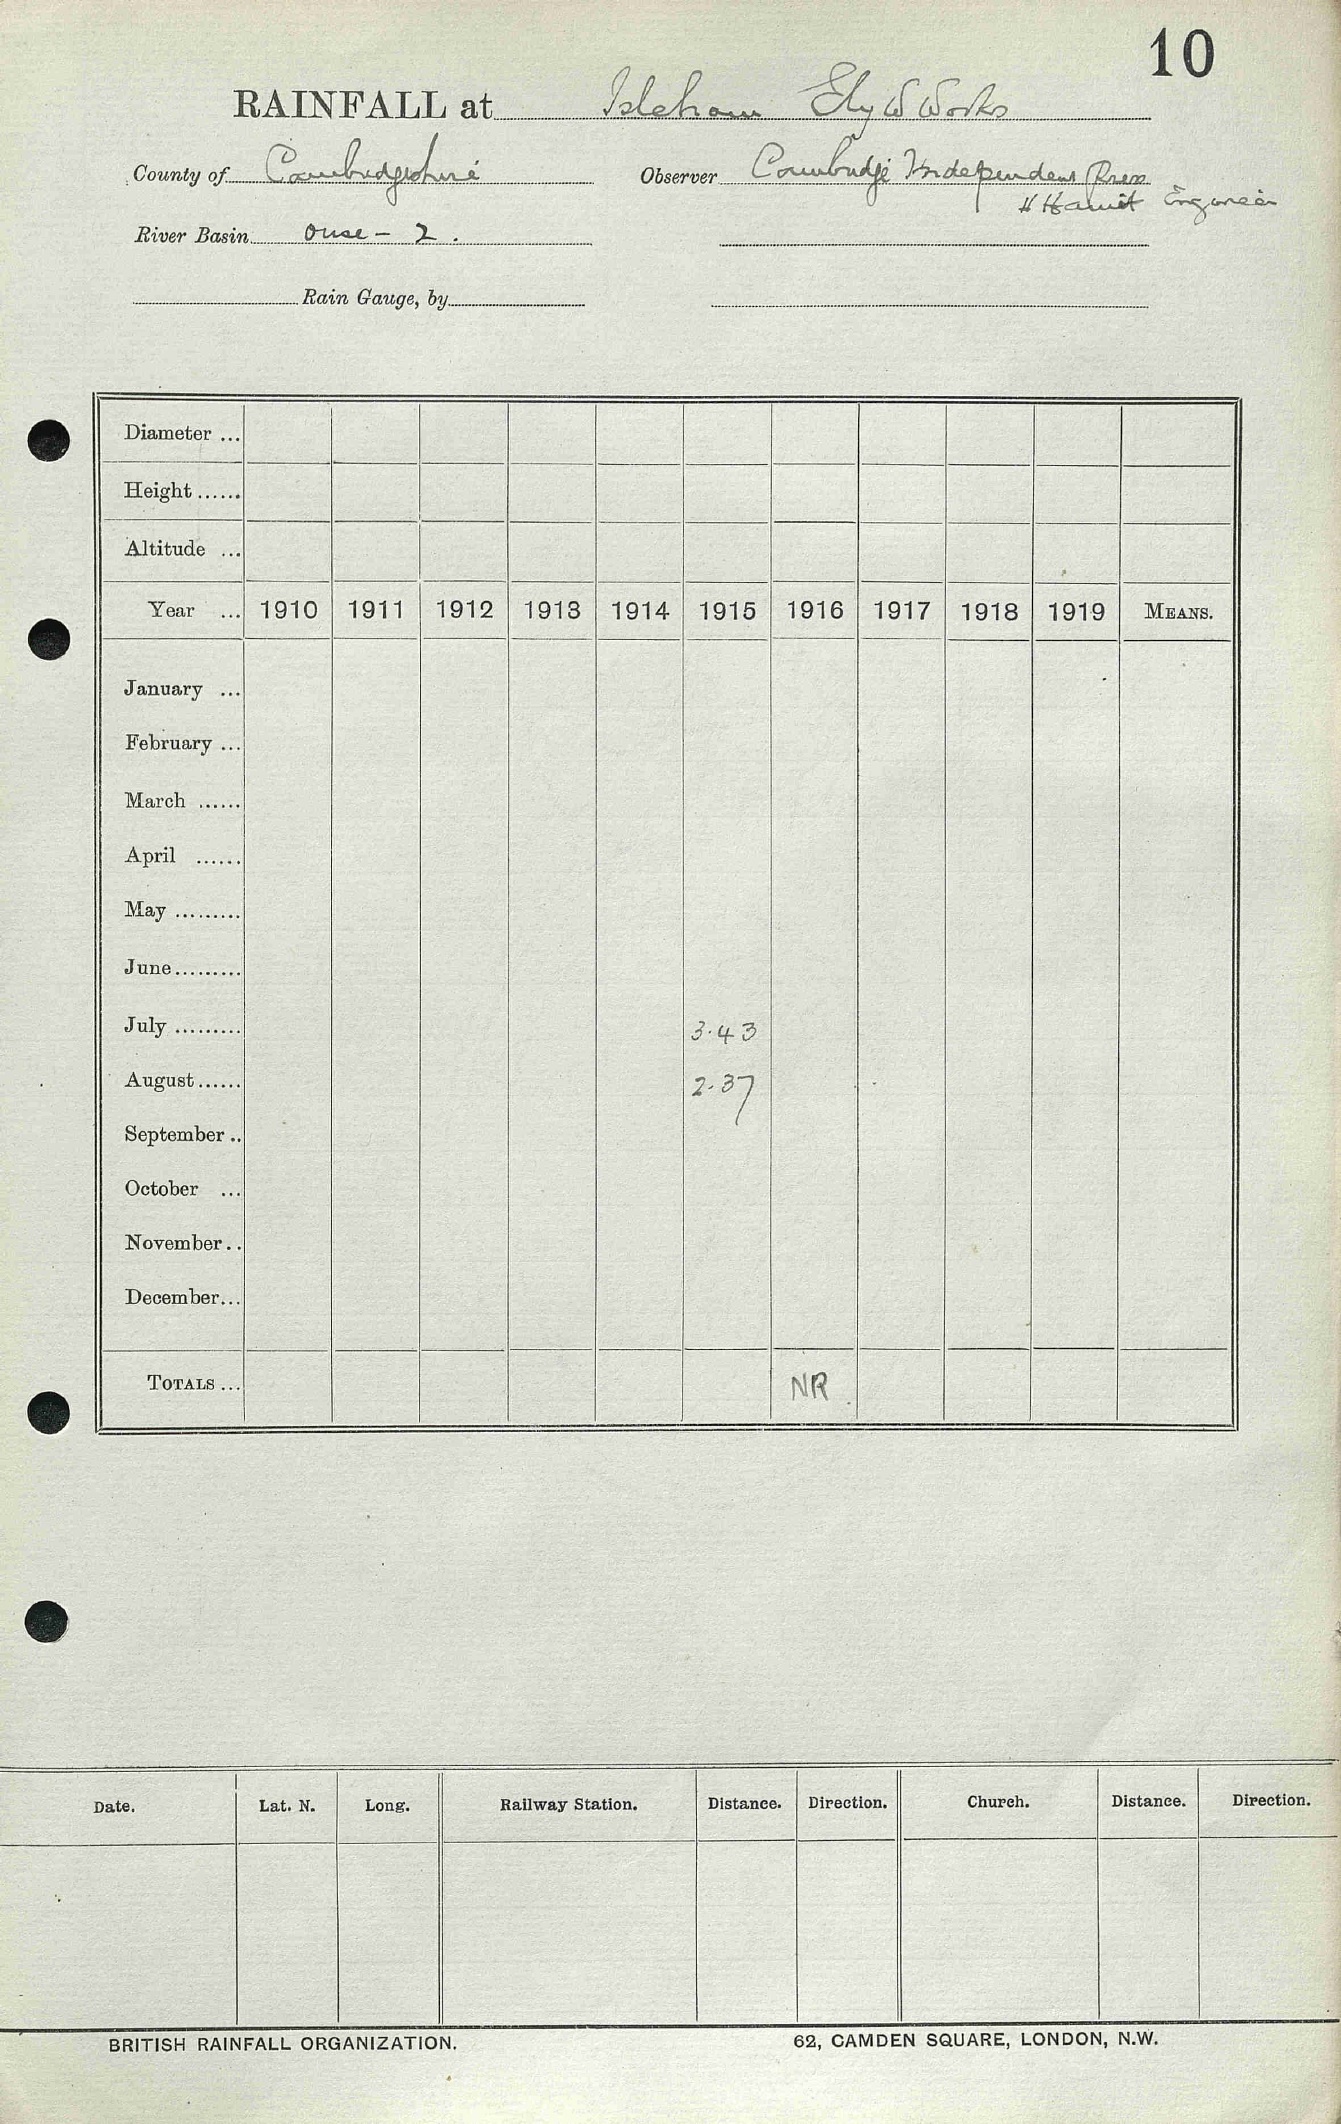 10
RAINFALL at Isleham Ely W Works
County of Cambridgeshire Observer Cambridge Independent Press
H Engineer
River Basin Ouse - 2.
Rain Gauge, by
Diameter ...
Height ......
Altitude ...
Year ... 1910 1911 1912 1913 1914 1915 1916 1917 1918 1919 MEANS.
January ...
February ...
March ......
April ......
May .........
June.........
July ......... 3.43
August...... 2.37
September ..
October ...
November..
December...
TOTALS ... NR
Date. Lat. N. Long. Railway Station. Distance. Direction. Church. Distance. Direction.
BRITISH RAINFALL ORGANIZATION. 62, CAMDEN SQUARE, LONDON, N.W.